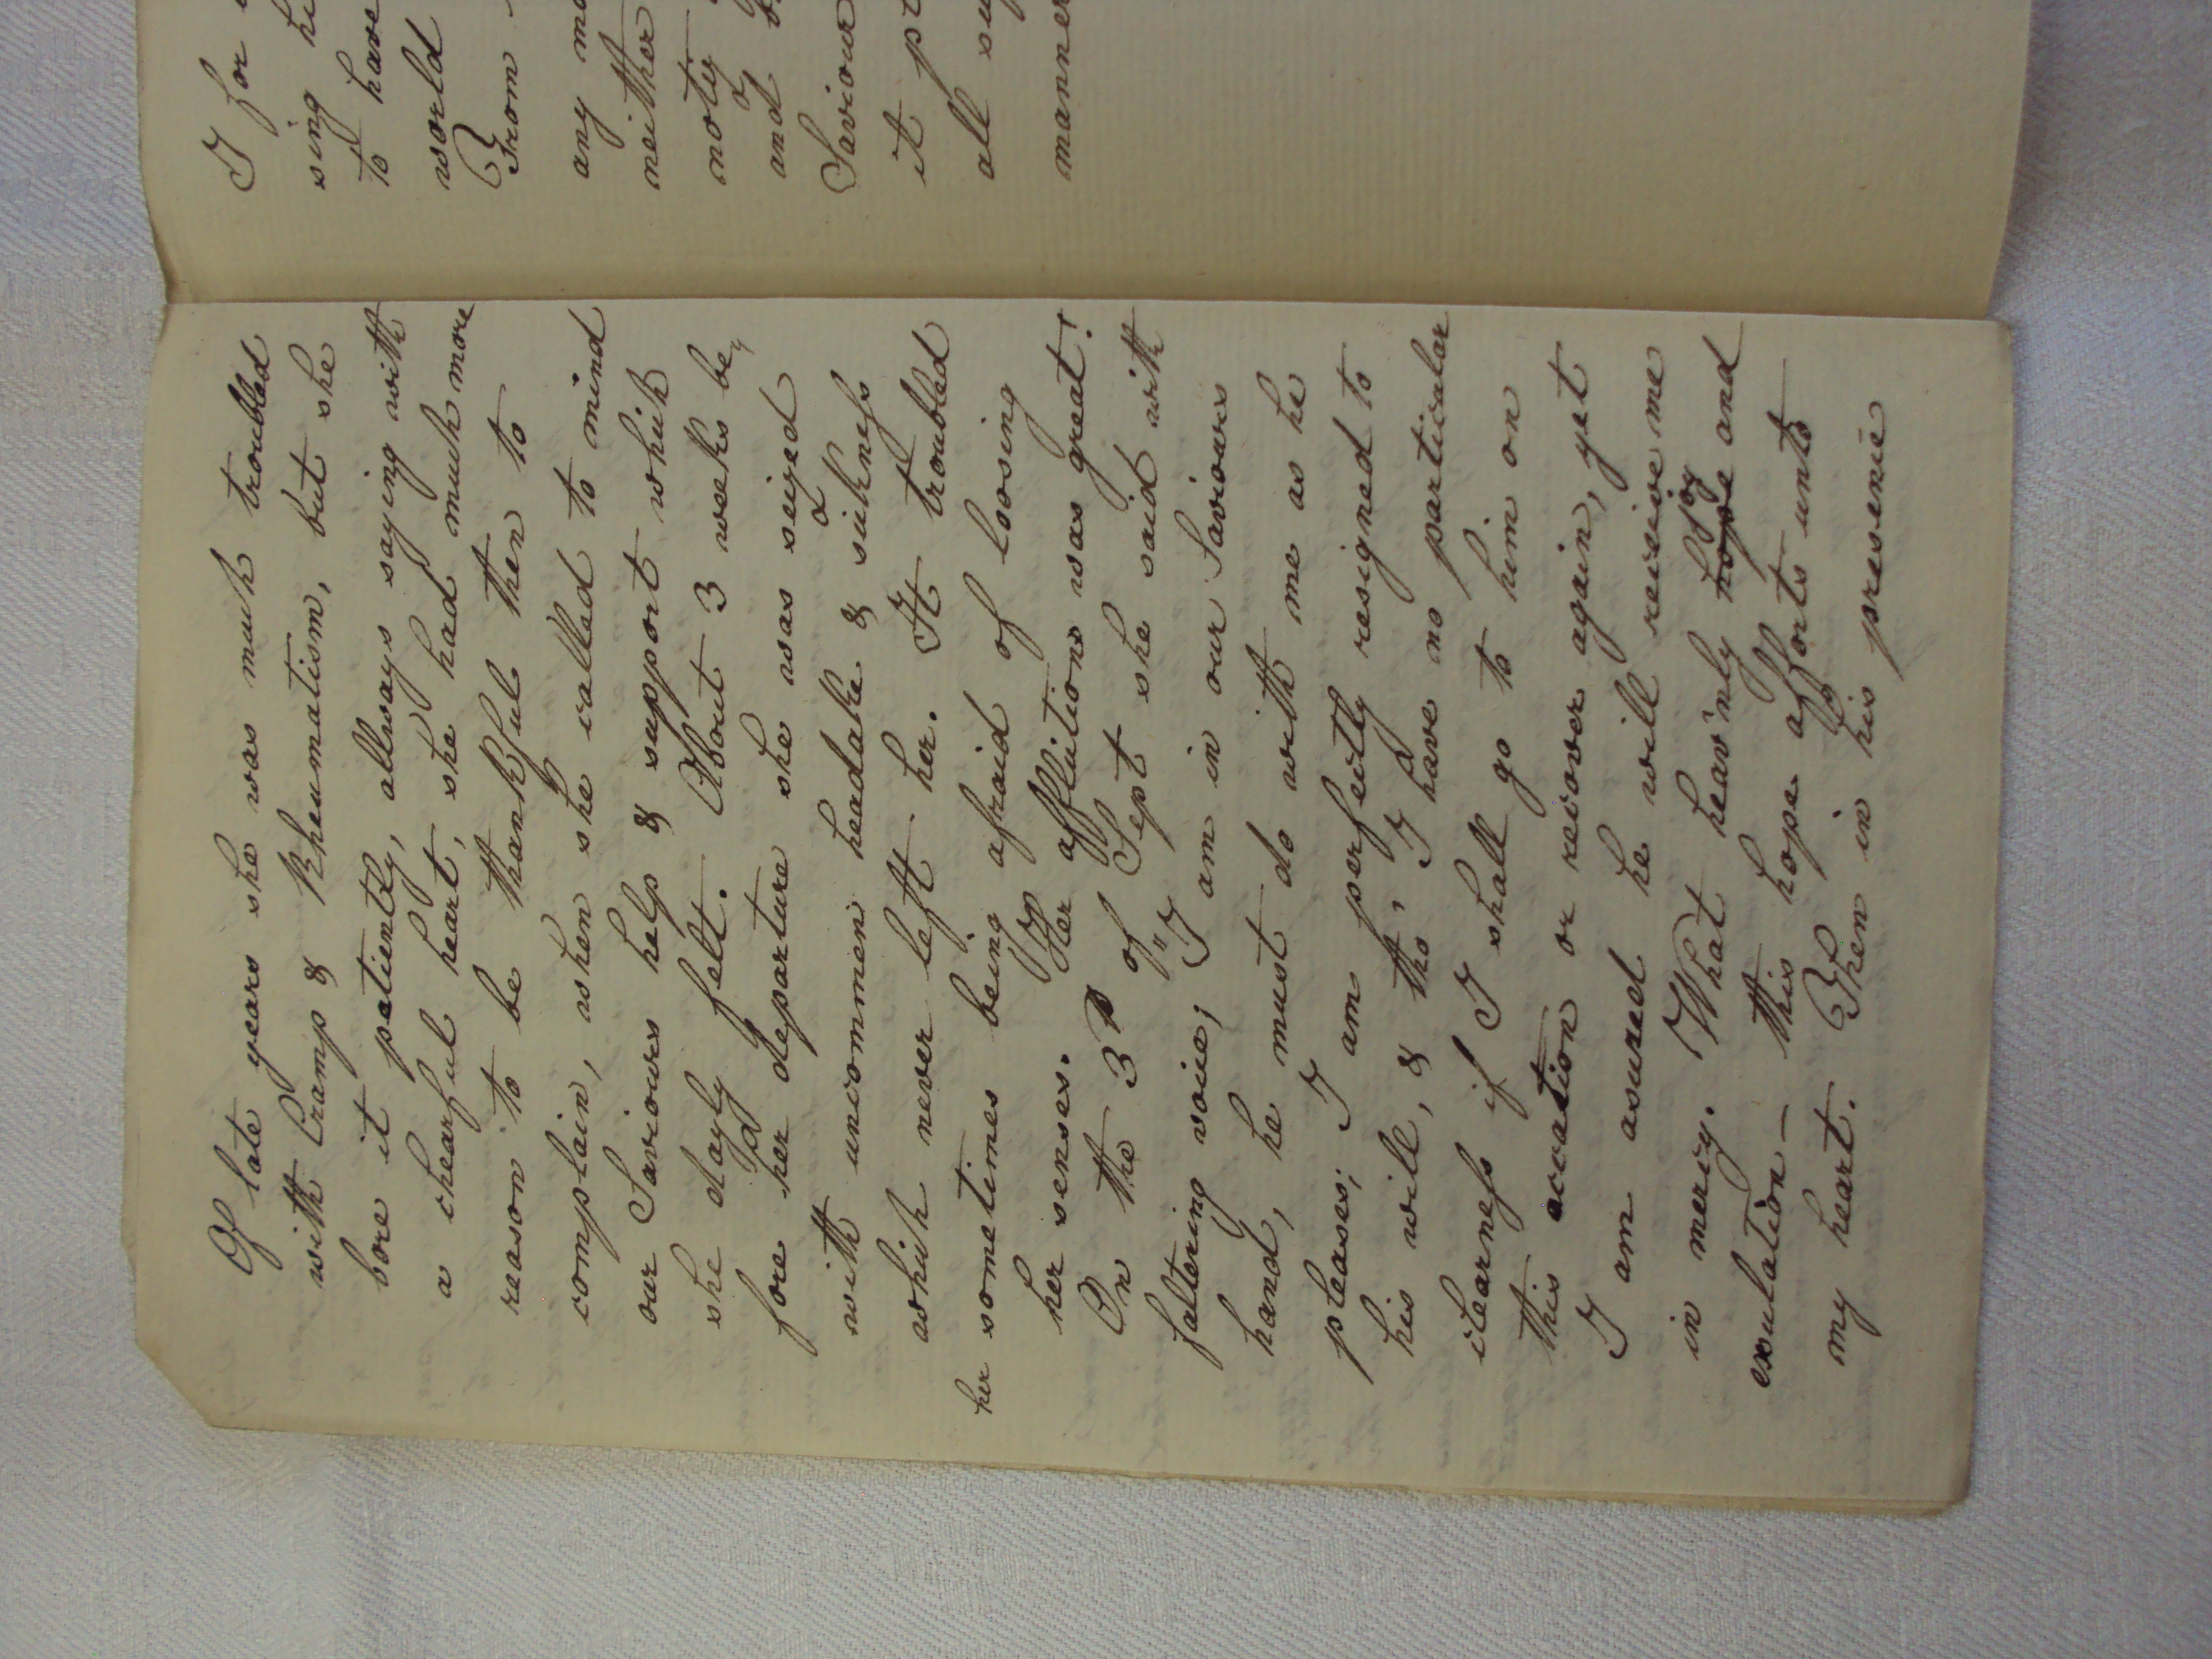 Of late years she was much troubled
with Cramp & Rheumatism, but she
bore it patiently, allways saying with
a chearful heart, she had much more
reason to be thankful then to
complain, when she called to mind
our Saviours help & support which
she dayly felt. About 3 weeks be„
fore her departure she was seized
with uncommen headake & sickness
which never left her. It troubled
her sometimes being afraid of loosing
her senses. Her afflictions was great!
On the 3d of Sept she said with
faltering voice; "I am in our Saviours
hand, he must do with me as he
pleases; I am perfectly resigned to
his will, & tho' I have no particular
clearness if I shall go to him on
this occation or recover again, yet
I am asured he will receive me
in mercy. What heav'nly hope joy and
exulation – this hope afforts unto
my heart. Then in his presence
I for
sing
to have
world
From
any
neither
notiz
and
Saviour
it
all
manner